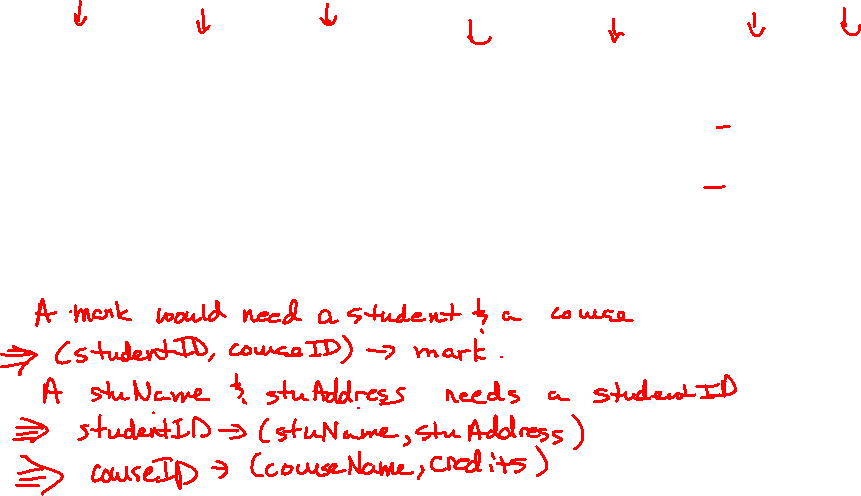 A mark would need a student & a course
⇒ (studentID, courseID) → mark.
A stuName & stuAddress needs a studentID
⇒ studentID → (stuName, stuAddress)
⇒ courseID → (courseName, credits)